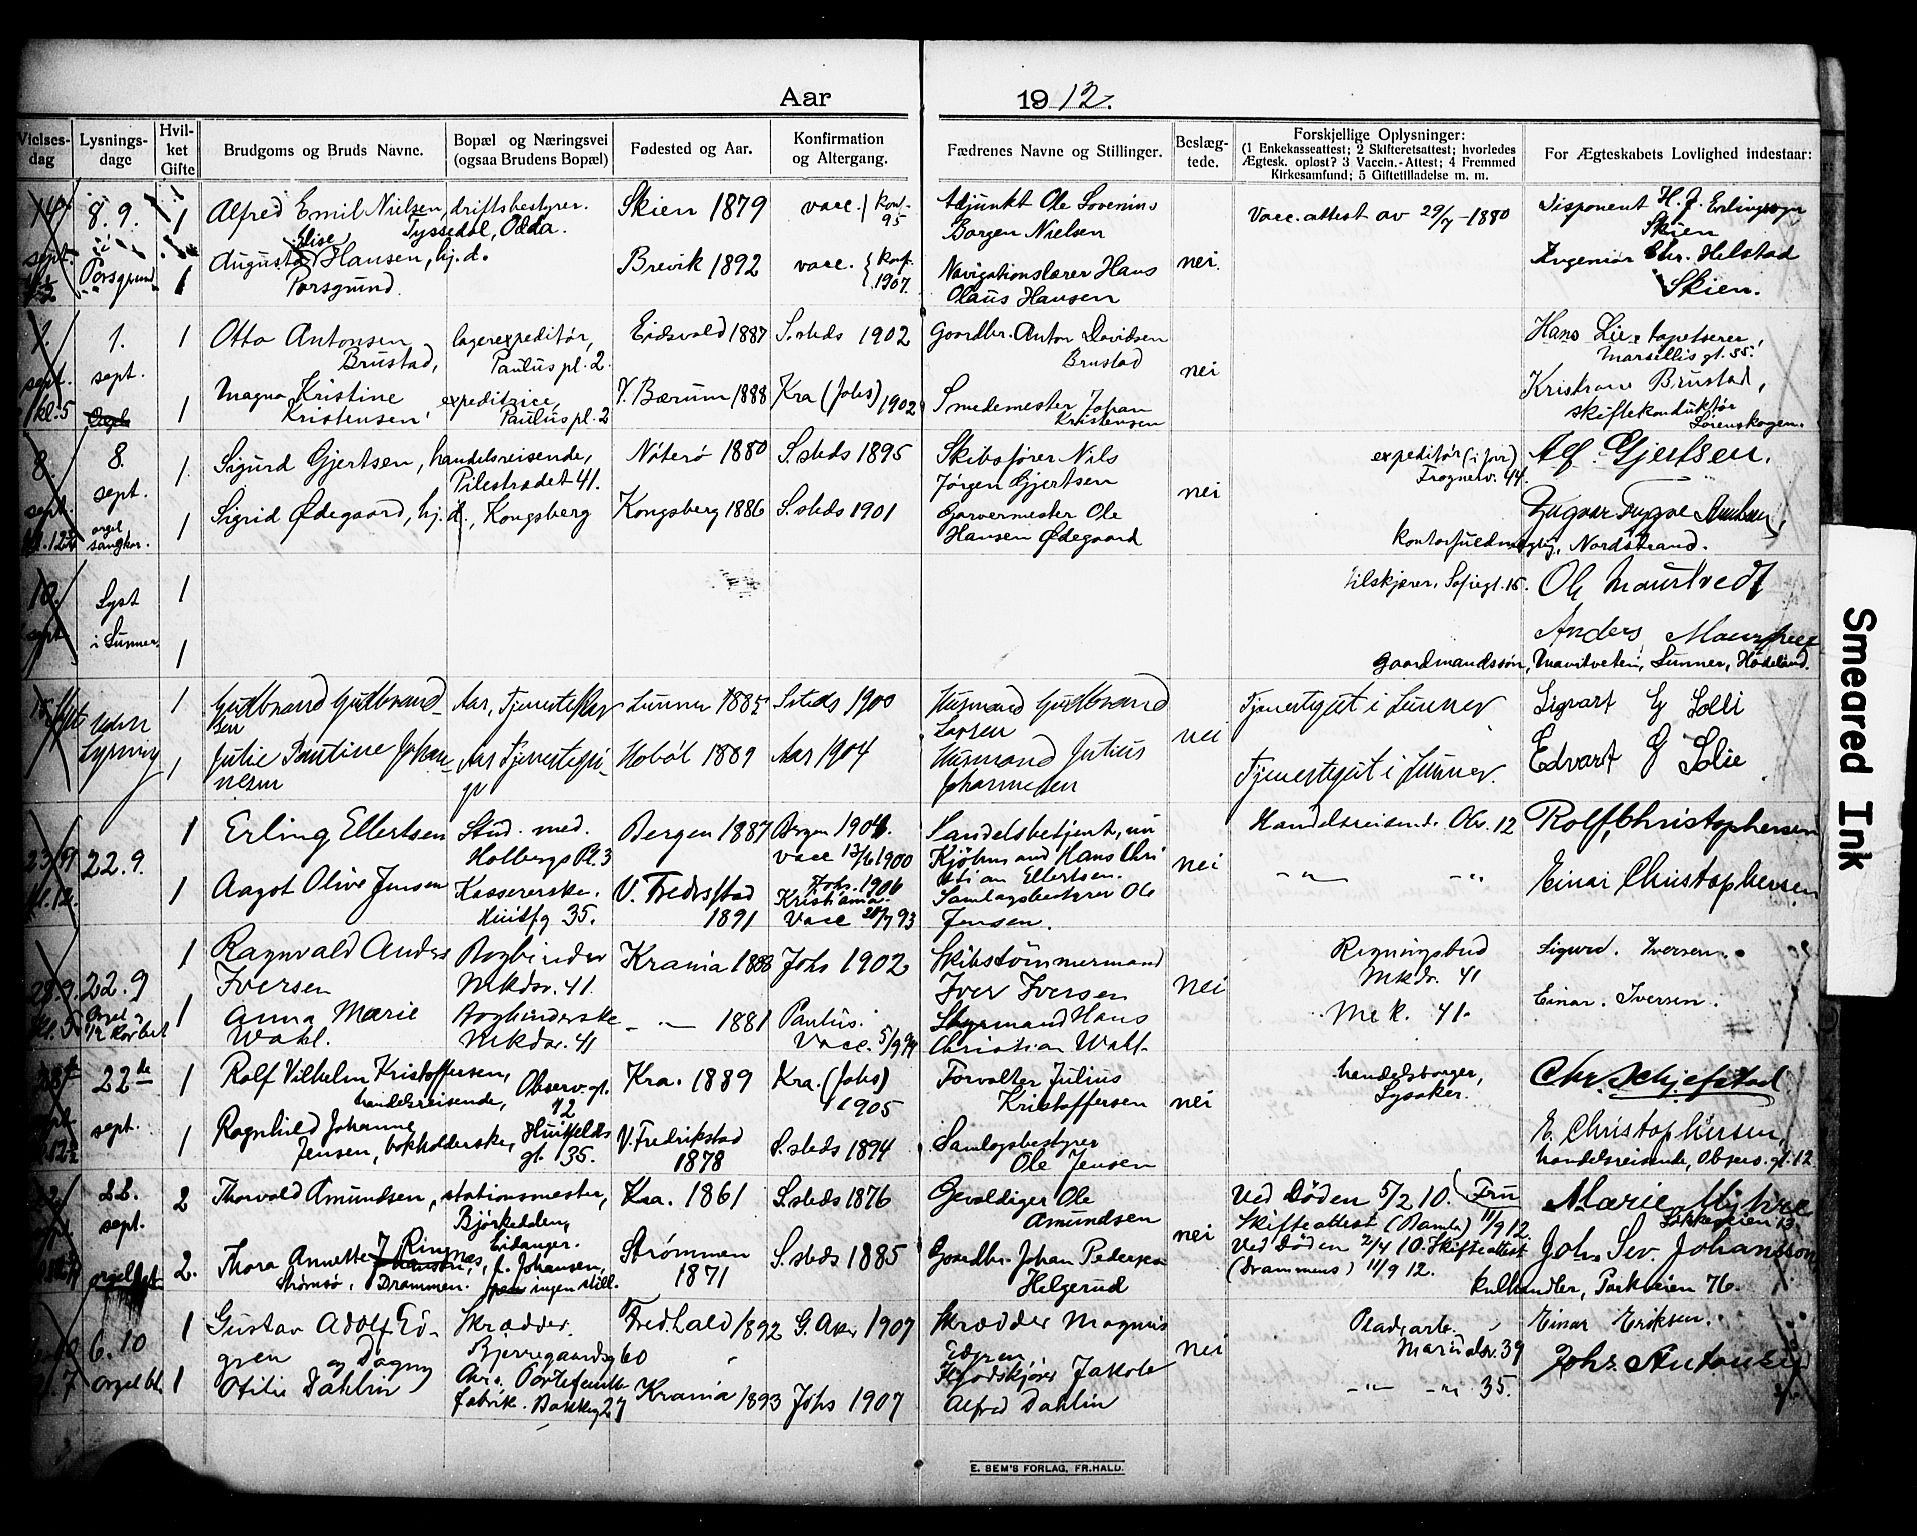 Aar 1912.
Vielses-dag
Lysnings-dage
Hvil-ket Gifte
Brudgoms og Bruds Navne.
Bopæl og Næringsvei (ogsaa Brudens Bopæl)
Fødested og Aar.
Konfirmation og Altergang.
Fædrenes Navne og Stillinger.
Beslæg-tede.
Forskjellige Oplysninger:
(1 Enkekasseattest; 2 Skifteretsattest; hvorledes
Ægtesk. opløst? 3 Vaccin.-Attest; 4 Fremmed
Kirkesamfund; 5 Giftetilladelse m. m.
For Ægteskabets Lovlighed indestaar:
14/ sept.
8.9. i Porsgrund
1 Alfred Emil Nielsen, driftsbestyrer. Tyssedal, Odda.
Skien 1879
vacc. konf. 95
Adjunkt Ole Lovenius Borgen Nielsen
Vacc. attest av 29/7-1880
Disponent H. J. Erlingsson Skien
1 Augusta Elise Hansen, hj. d. Porsgrund.
Brevik 1892
vacc. konf. 1907.
Navigationslærer Hans Olaus Hansen
nei.
Ingeniør Chr. Helstad Skien.
1. sept. kl. 5
1. sept.
1 Otto Antonsen Brustad, lagerexpeditør, Paulus pl. 2.
Eidsvold 1887
S. steds 1902
Gaardbr. Anton Davidsen Brustad
nei
Hans Lie, tapetserer, Marsellis gt. 35.
1 Magna Kristine Kristensen, expeditrice, Paulus pl. 2
V. Bærum 1888
Kra (Johs) 1902
Smedemester Johan Kristensen
Kristiane Brustad, skiftekonduktør Lørenskogen.
8 sept.
8. sept. orgel sangkor.
1. Sigurd Gjertsen, handelsreisende, Pilestrædet 41.
Nøterø 1880
S. steds 1895
Skibsfører Nils Jørgen Gjertsen
nei
expeditør Frognerv. 44.
Alf Gjertsen.
1 Sigrid Ødegaard, hj. d., Kongsberg
Kongsberg 1886
S. steds 1901
Garvermester Ole Hansen Ødegaard
kontorfuldmægtig, Nordstrand.
10. sept.
Lyst i Lunner
1
1
tilskjærer, Sofiegt. 15.
Anders
gaardmandssøn, Lunner, Hadeland.
Uden Lysning
1 Gudbrand Gudbrandsen
Lunner 1885
S. steds 1900
Husmand Gudbrand Larsen
nei
Tjenestegut i Lunner
Sigvart G Solli
1 Julie Pautine Johannesen
Hobøl 1889
Aas 1904
Husmand Julius Johannesen
Tjenestegut i Lunner.
Edvart G Solie
23/9 kl. 12
22.9.
1 Erling Ellertsen
Stud. med. Holbergs Pl. 3
Bergen 1887
Bergen 1904. vacc 13/6 1900
Handelsbetjent, nu Kjøbmand Hans Christian Ellertsen.
nei
Handelsreisend. Obs. 12
Rolf Christophersen
1 Aagot Olive Jensen
Kassererske. Huitfg 35.
V. Fredrstad 1891
Johs. 1906 Kristiania. Vacc 28/7 93
Samlagsbestyrer Ole Jensen.
-"- -"-
Einar Christophersen
28.9. kl. 5
22.9 Orgel
1 Ragnvald Anders Iversen
Bogbinder Mkdsv. 41.
Krania 1888
Johs 1902
Skibstømmermand Iver Iversen
nei
Regningsbud Mkdsv. 41
Sigurd. Iversen.
1 Anna Marie Wahl.
Bogbinderske Mkdsv. 41
-"- 1881
Paulus. Vacc. 5/9 94
Styrmand Hans Christian Wahl.
Mek. 41.
Einar. Iversen.
28de sept.
22de sept.
1 Rolf Vilhelm Kristoffersen, handelsreisende, Observ. gt. 12
Kra. 1889
Kra. (Johs) 1905
Forvalter Julius Kristoffersen
nei
handelsborger, Lysaker.
Chr. Schjefstad
1 Ragnhild Johanne Jensen, bokholderske, Huitfelds gt. 35.
V. Fredrikstad 1878
S. steds 1894
Samlagsbestyrer Ole Jensen
E. Christophersen, handelsreisende, Observ. gt. 12
22. sept. orgel
2 Thorvald Amundsen, stationsmester, Bjørkedalen, Eidanger.
Kra. 1861
S. steds 1876
Gevaldiger Ole Amundsen
nei
Ved Døden 5/2 10. Skifteattest (Bamle) 11/9 12.
Fru Marie Myhre
2. Thora Annette Ringnæs, f. Johansen, Strømsø, Drammen. ingen still.
Strømmen 1871
S. steds 1885
Gaardbr. Johan Pedersen Helgerud
Ved Døden 2/4 10. Skifteattest (Drammens) 11/9 12.
Johs. Sev. Johansson
kulhandler, Parkveien 76.
6.10 orgel bl.
1 Gustav Adolf Edgren og
Skrædder. Bjerregaardsg 60
Fredhald 1892
G. Aker 1907
Skrædder Magnus Edgren
nei
Pladearb. Maridalsv. 39
Einar Eriksen.
1 Dagny Otilie Dahlin
fabrik. Bakkeg 27
Krania 1893
Johs 1907
Alfred Dahlin
-"- -"- 35.
Johs Antonsen
E. SEM'S FORLAG, FR.HALD.
Smeared Ink